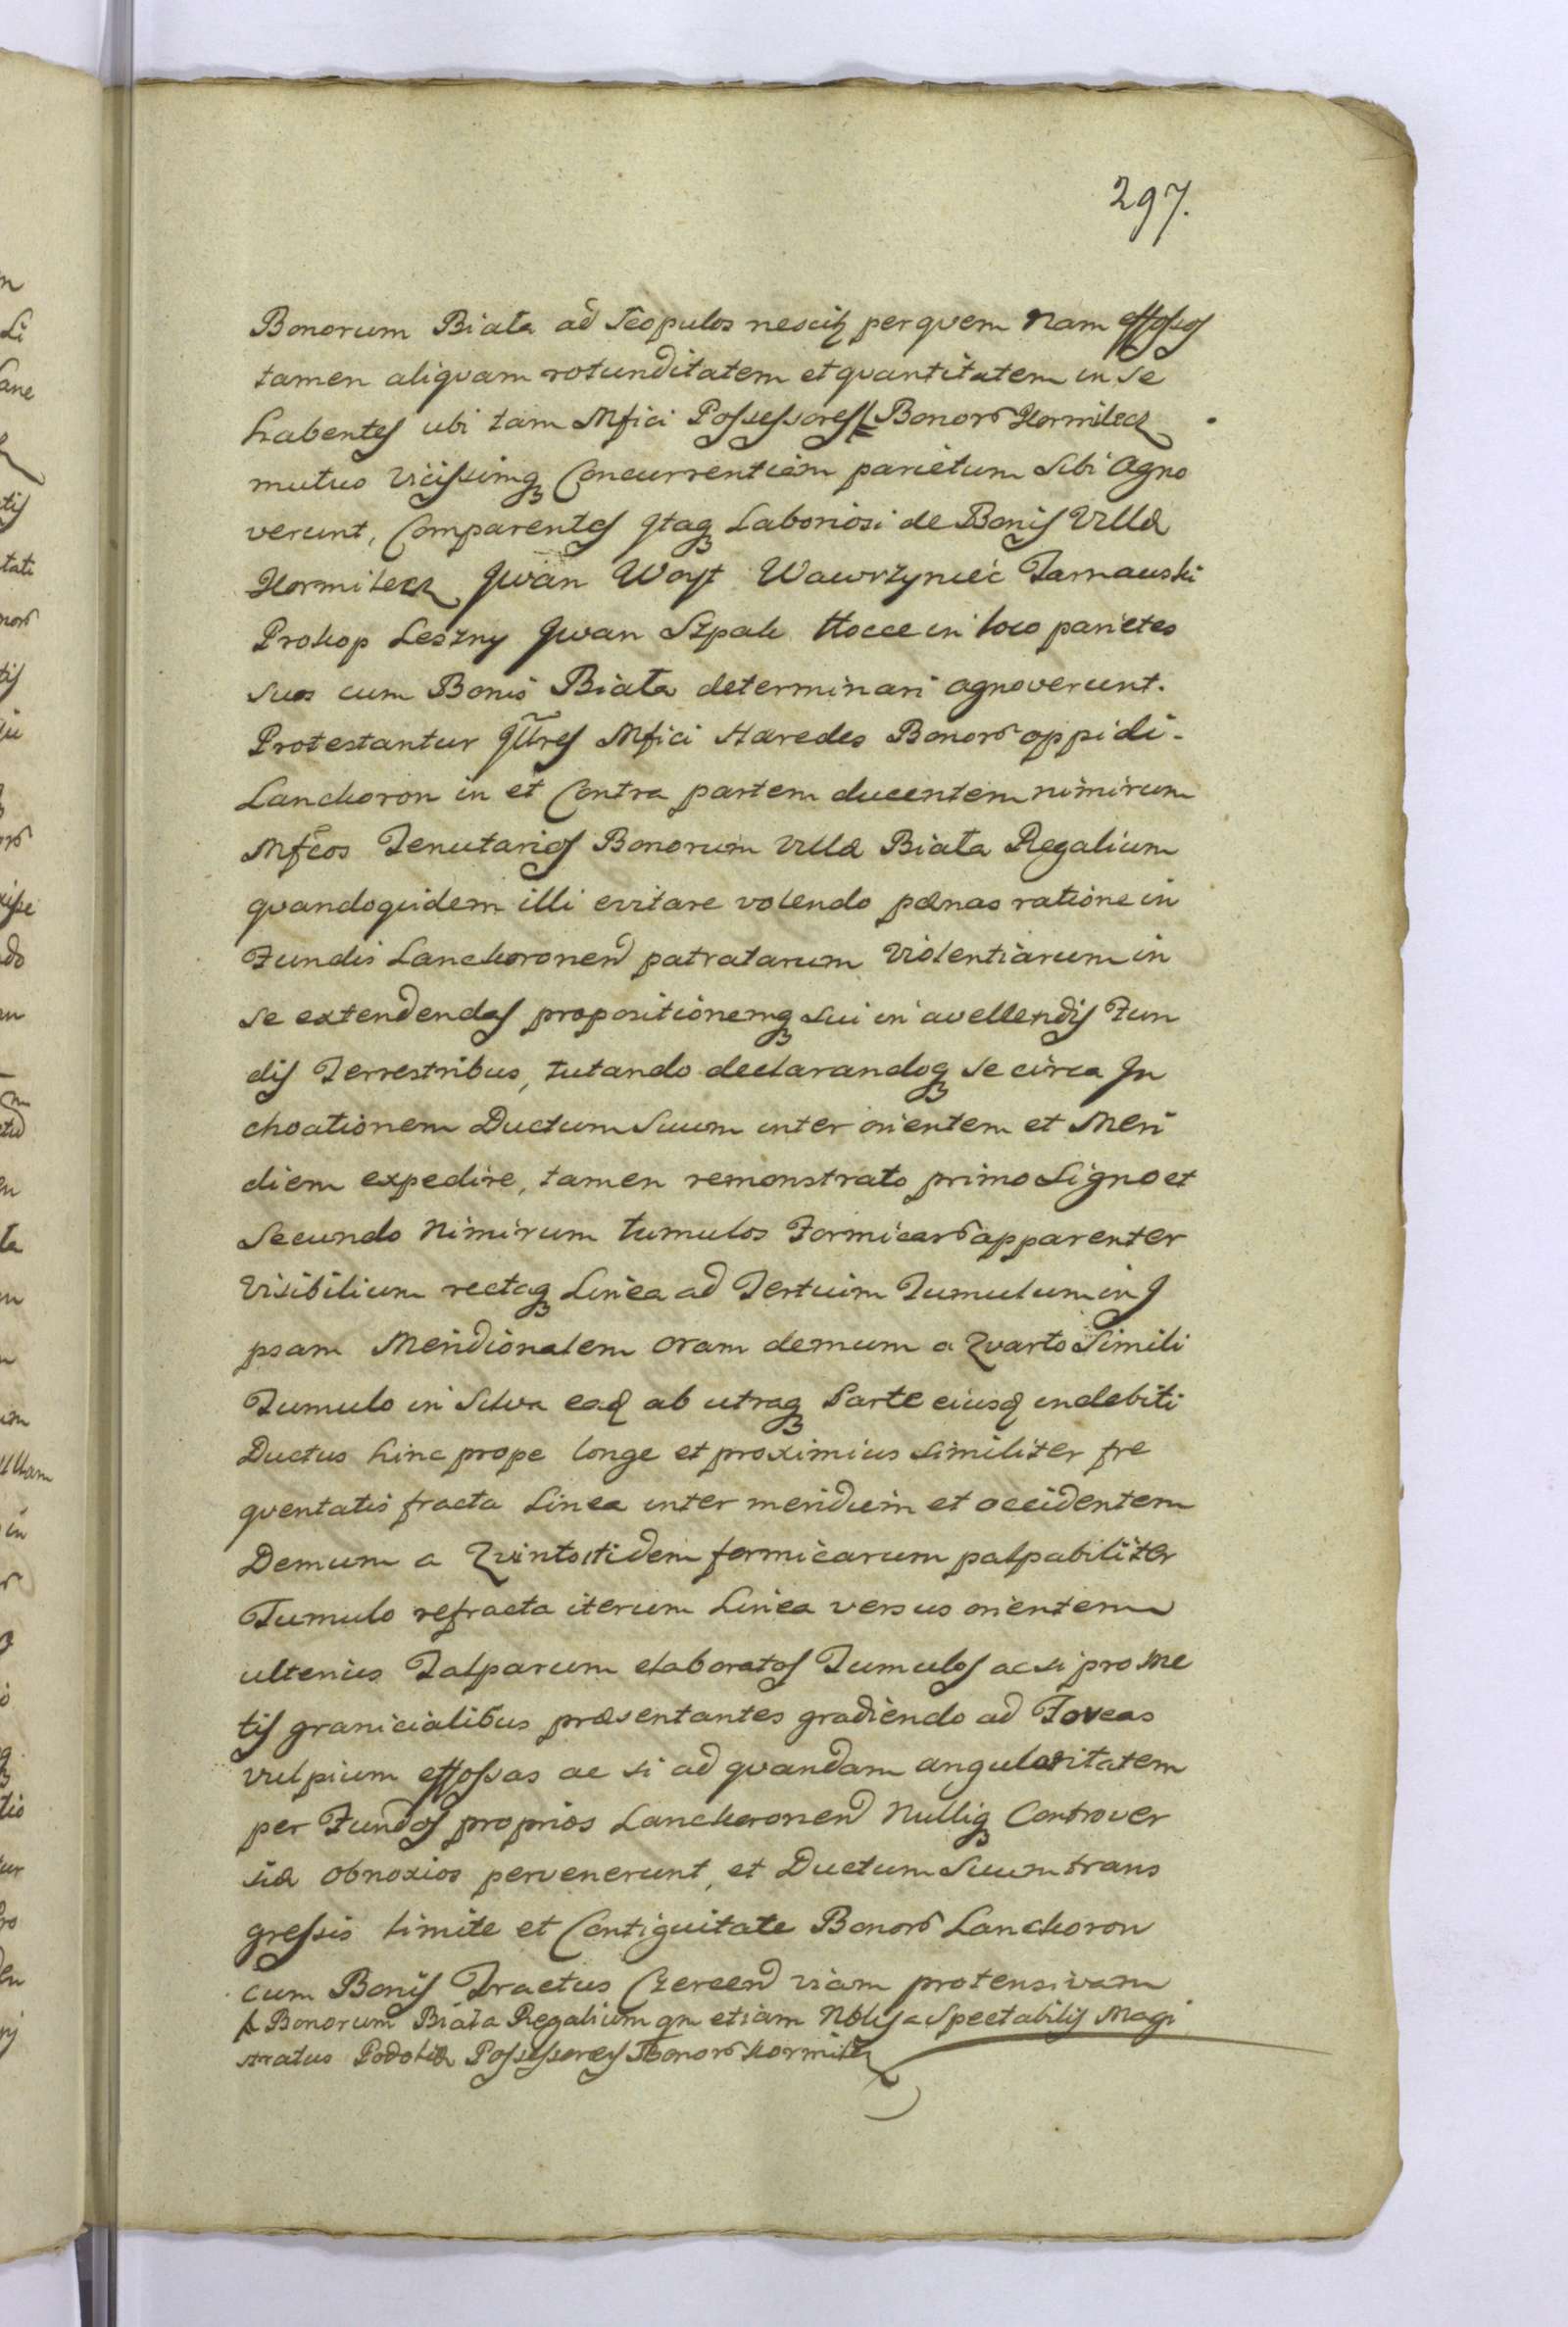 297.
Bonorum Biała ad Scopulos nescitȝ per quem Nam effossos
tamen aliquam rotunditatem et quantitatem in se
habentes ubi tam Mfici Possessores Bonorō Hormileck
mutuo vicissimqȝ Concurrentiam parietum Sibi Agno
verunt, Comparentes Itaqȝ Laboriosi de Bonis Villæ
Hormileck Iwan Woyt Wawrzyniec Tarnauski
Prokop Leszny Iwan Szpak Hocce in loco parietes
suos cum Bonis Biała determinari agnoverunt.
Protestantur Mfici Hæredes Bonorō oppidi
Lanckoron in et Contra partem ducentem nimirum
Mfcos Tenutarios Bonorum Villæ Biała Regalium
quandoquidem illi evitare volendo pænas ratione in
Fundis Lanckoronen patratarum Violentiarum in
se extendendas propositionemqȝ sui in avellendis Fun
dis Terrestribus, tutando declarandoqȝ se circa In
choationem Ductum Suum inter orientem et Meri
diem expedire, tamen remonstrato primo Signo et
Secundo Nimirum tumulos Formicarō apparenter
Visibilium rectaqȝ Linea ad Tertium Tumulum in I
psam Meridionalem oram demum a Quarto Simili
Tumulo in Silva eaqȝ ab utraqȝ Parte eiusqȝ indebiti
Ductus hinc prope longe et proximius similiter fre
quentatis fracta Linea inter meridiem et occidentem
Demum a Quinto itidem formicarum palpabiliter
Tumulo refracta iterum Linea versus orientem
ulterius Talparum elaboratos Tumulos acsi pro Me
tis granicialibus præsentantes gradiendo ad Foveas
vulpium effossas ac si ad quandam angularitatem
per Fundos proprios Lanckoronen Nulliqȝ Controver
siæ obnoxios pervenerunt, et Ductum Suum trans
gressis limite et Contiguitate Bonorō Lanckoron
cum Bonis Tractus Czercen viam protensivam
Bonorum Biała Regalium qm etiam Nblis a Spectabilis Magi
stratus Podoliæ Possessores Bonorō Hormileck